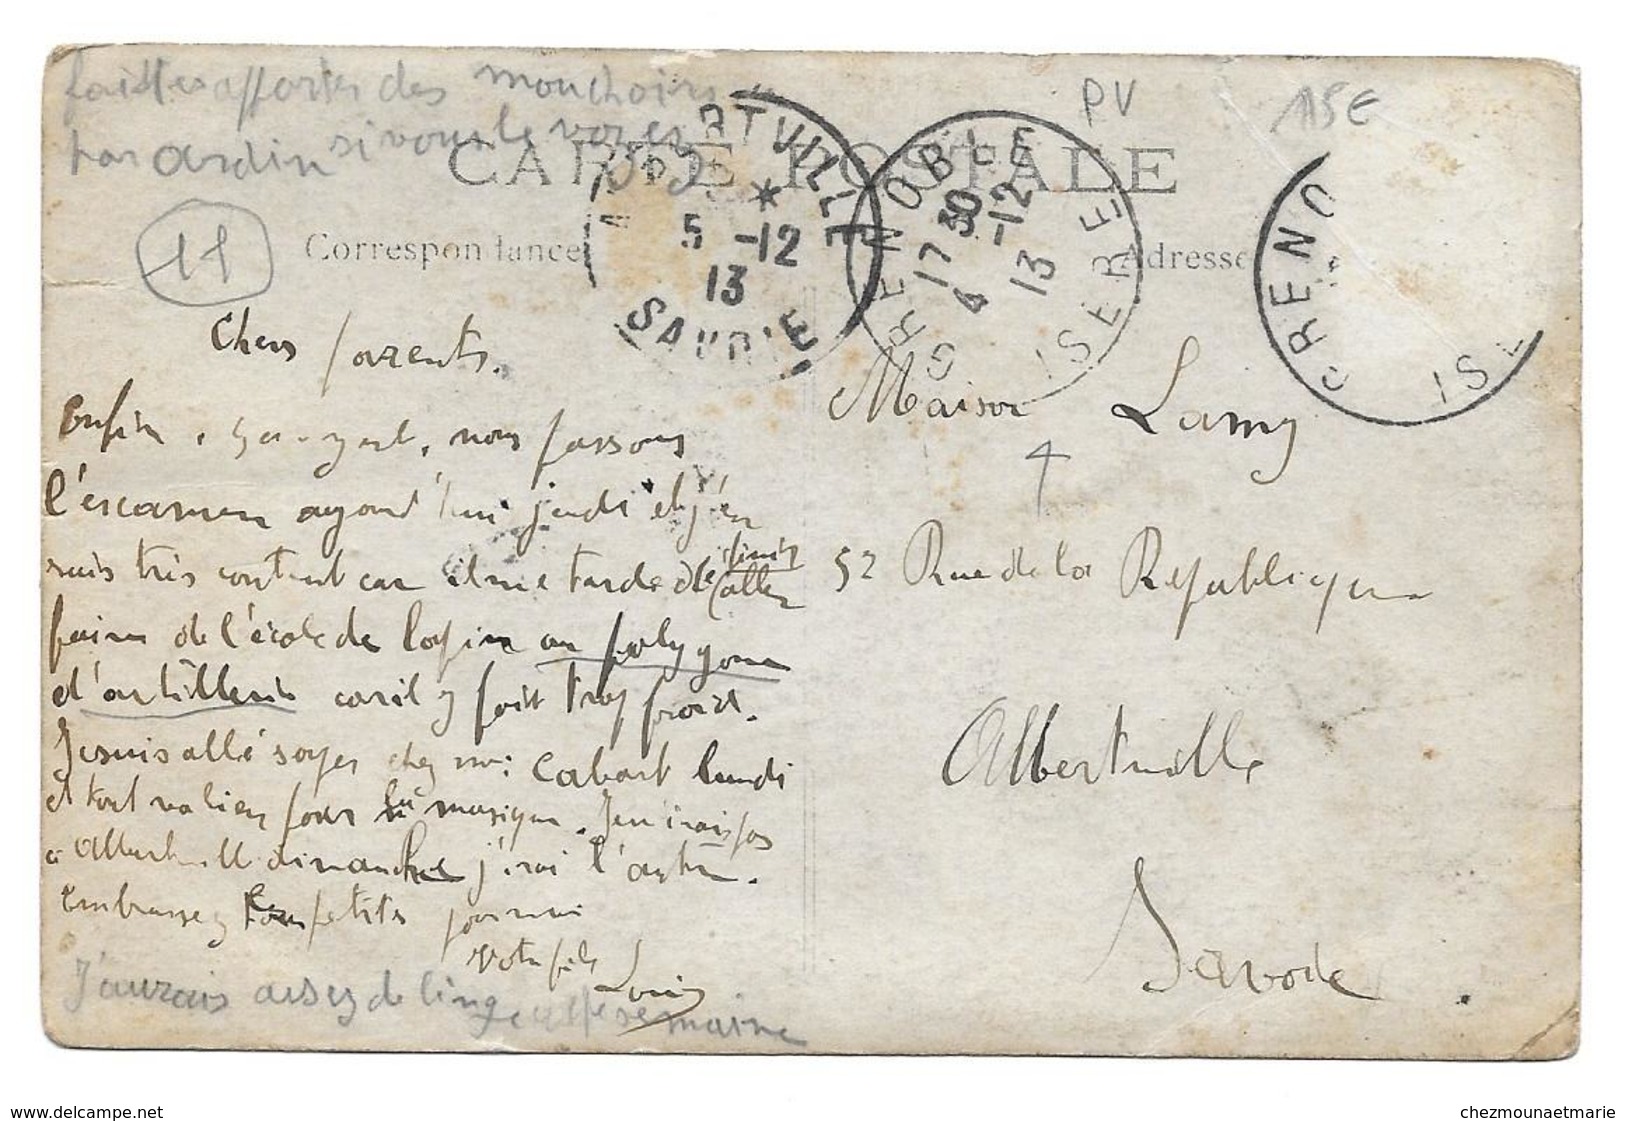 faittes apporter des mouchoirs
par ardin si vous le voyez
PV
115€
CARTE POSTALE
11
Correspondance
Adresse
ALBERTVILLE
5 -12
13
SAVOIE
GRENOBLE
17 30
4 -12
13
ISERE
GRENO
ISE
Chers parents.
Enfin, nous passons
l'escamen aujourd'hui jeudi et j'en
suis très content car il me tarde de finir d'aller
faire de l'école de lapin au polygone
d'artillerie car il y fait trop froid.
Je suis allé souper chez Cabart lundi
et tout va bien pour la musique. Je n'irais pas
a Albertville dimanche j'irai l'autre.
Embrassez les petits pour moi
Votre fils
Louis
J'aurais assez de linge cette semaine
Maison Lamy
52 Rue de la République
Albertville
Savoie.
www.delcampe.net
chezmounaetmarie